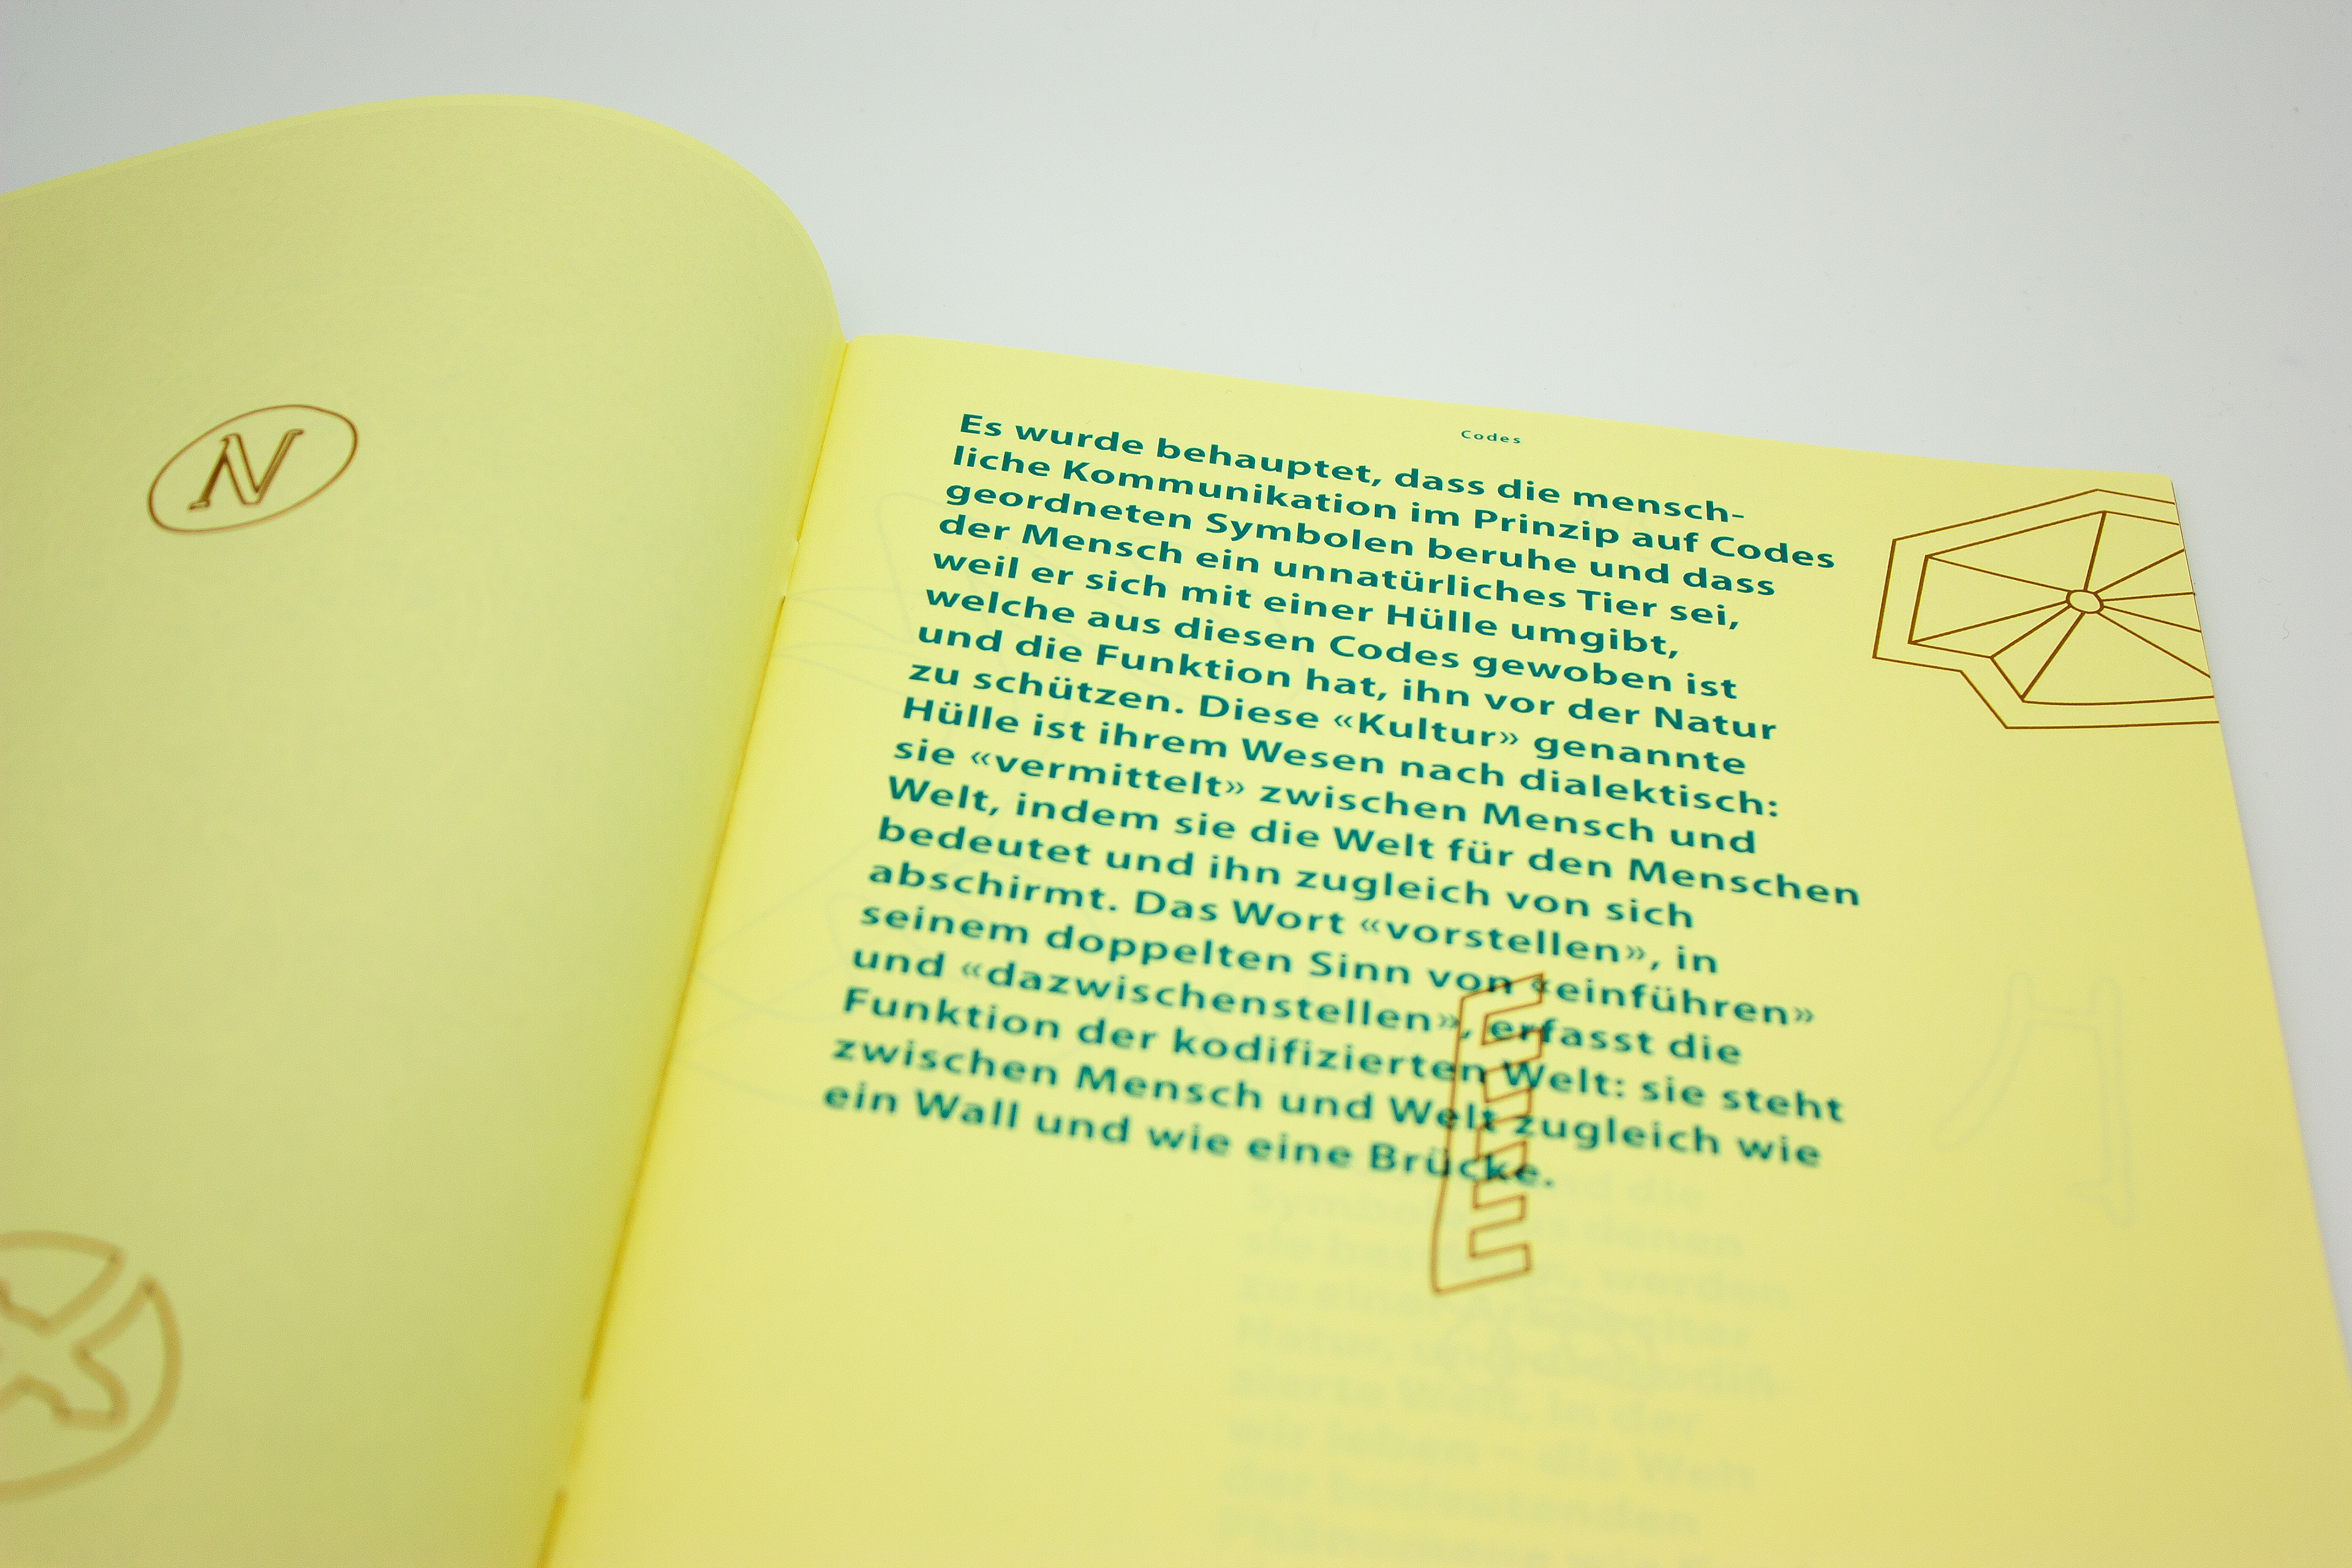 N
Codes
Es wurde behauptet, dass die mensch-
liche Kommunikation im Prinzip auf Codes
geordneten Symbolen beruhe und dass
der Mensch ein unnatürliches Tier sei,
weil er sich mit einer Hülle umgibt,
welche aus diesen Codes gewoben ist
und die Funktion hat, ihn vor der Natur
zu schützen. Diese «Kultur» genannte
Hülle ist ihrem Wesen nach dialektisch:
sie «vermittelt» zwischen Mensch und
Welt, indem sie die Welt für den Menschen
bedeutet und ihn zugleich von sich
abschirmt. Das Wort «vorstellen», in
seinem doppelten Sinn von «einführen»
und «dazwischenstellen», erfasst die
Funktion der kodifizierten Welt: sie steht
zwischen Mensch und Welt zugleich wie
ein Wall und wie eine Brücke.
nd die
denen
werden
zierte Welt, in der
wir leben – die Welt
der bedeutenden